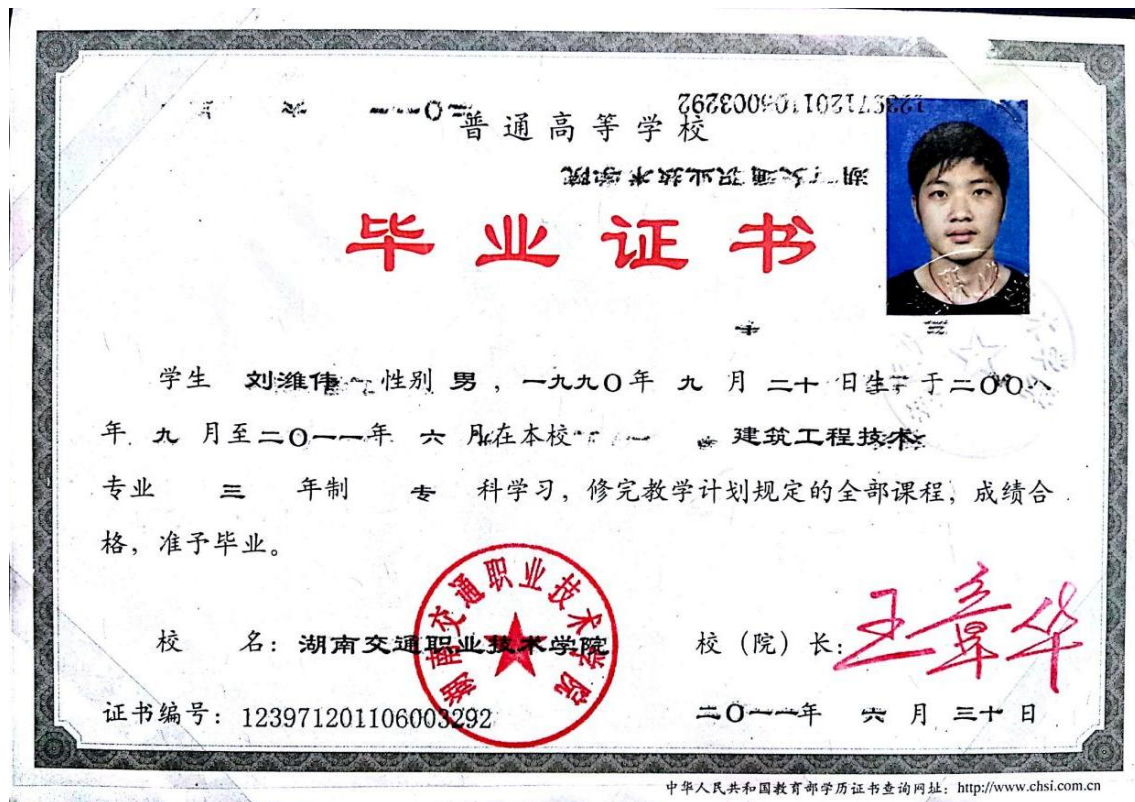 普通高等学校
毕业证书
学生 刘潍伟 性别 男 ，一九九〇年 九 月 二十 日生 于二〇〇八
年 九 月至二〇一一年 六 月在本校 建筑工程技术
专业 三 年制 专 科学习，修完教学计划规定的全部课程，成绩合
格，准予毕业。
湖南交通职业技术学院
校 名：湖南交通职业技术学院
校（院）长：王章华
证书编号：123971201106003292
二〇一一年 六 月 三十 日
中华人民共和国教育部学历证书查询网址：http://www.chsi.com.cn